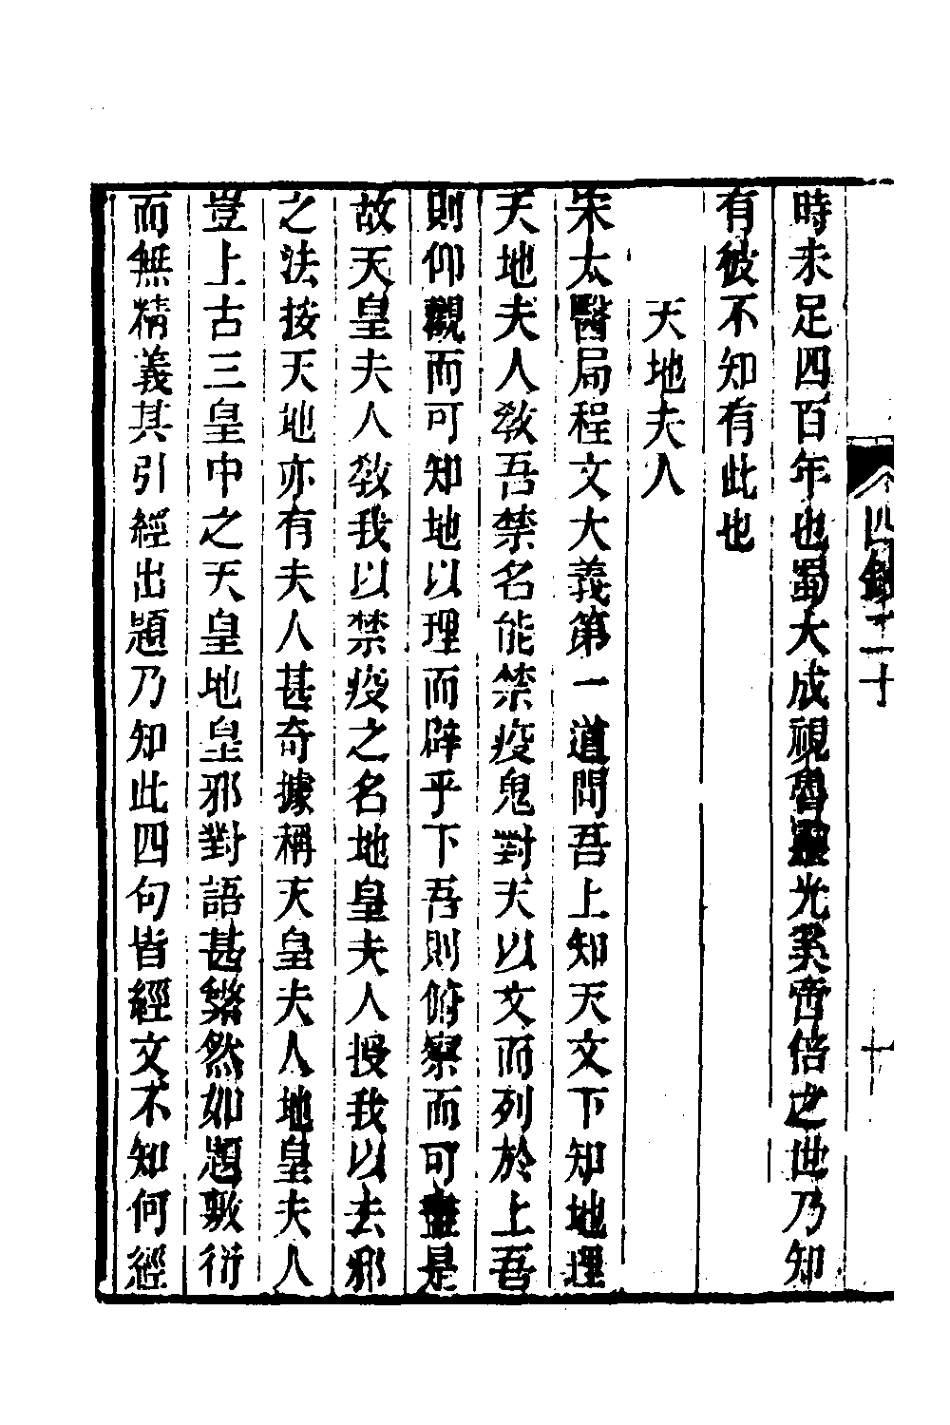 四錄二十
十
時未足四百年也蜀大成視魯靈光奚啻倍之世乃知
有彼不知有此也
天地夫人
宋太醫局程文大義第一道問吾上知天文下知地理
天地夫人敎吾禁名能禁疫鬼對天以文而列於上吾
則仰觀而可知地以理而辟乎下吾則俯察而可盡是
故天皇夫人敎我以禁疫之名地皇夫人授我以去邪
之法按天地亦有夫人甚奇據稱天皇夫人地皇夫人
豈上古三皇中之天皇地皇邪對語甚繁然如題敷衍
而無精義其引經出題乃知此四句皆經文不知何經